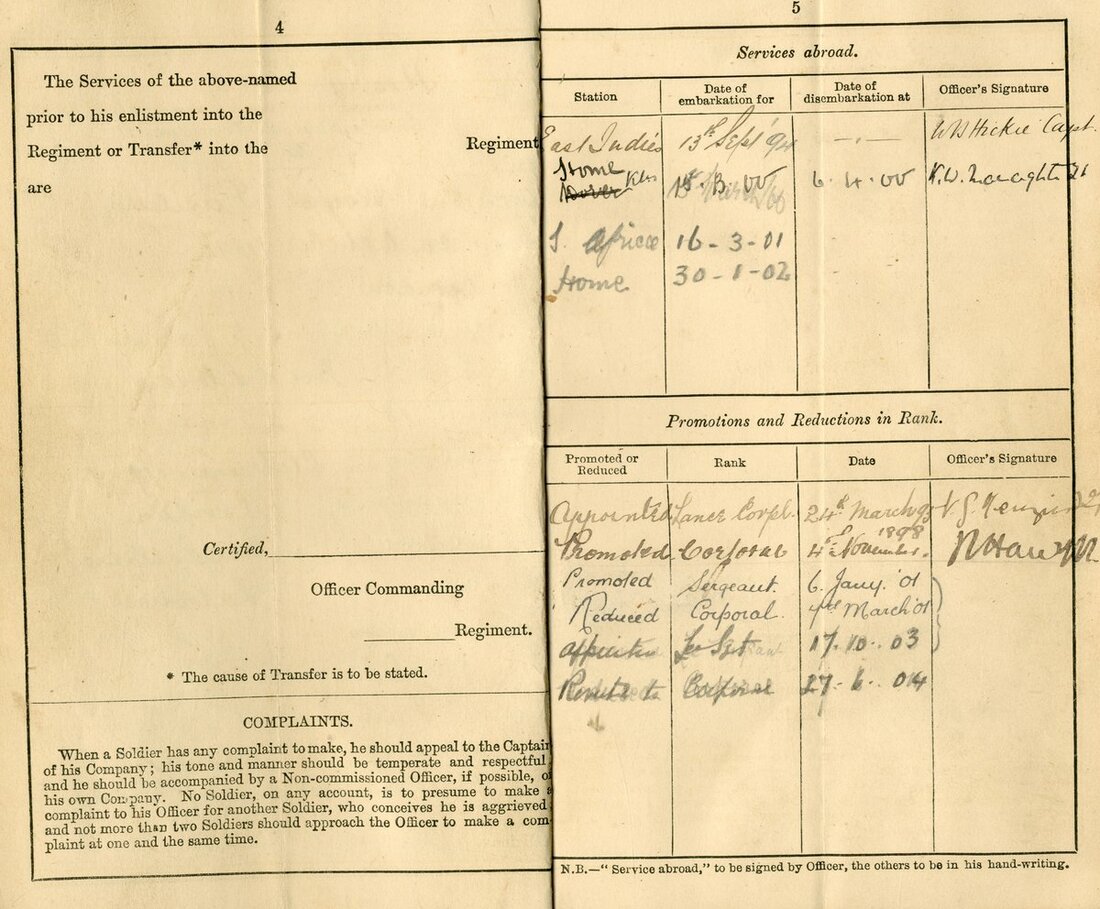 4
The Services of the above-named
prior to his enlistment into the
Regiment or Transfer* into the Regiment
are
Certified,
Officer Commanding
Regiment.
* The cause of Transfer is to be stated.
COMPLAINTS.
When a Soldier has any complaint to make, he should appeal to the Captain
of his Company; his tone and manner should be temperate and respectful
and he should be accompanied by a Non-commissioned Officer, if possible, o
his own Company. No Soldier, on any account, is to presume to make a
complaint to his Officer for another Soldier, who conceives he is aggrieved
and not more than two Soldiers should approach the Officer to make a com-
plaint at one and the same time.
5
Services abroad.
Station Date of embarkation for Date of disembarkation at Officer's Signature
East Indies 13th Sept '94 Hickie Capt.
Home 6.4.00
Dover
S. Africa 16-3-01
Home 30-1-02
Promotions and Reductions in Rank.
Promoted or Reduced Rank Date Officer's Signature
Appointed Lance Corpl. 24th March 95
Promoted Corporal 4th November 1898
Promoted Sergeant. 6 Jany. '01
Reduced Corporal. March '01
17.10.03
Corporal 27.6.04
N.B.—"Service abroad," to be signed by Officer, the others to be in his hand-writing.